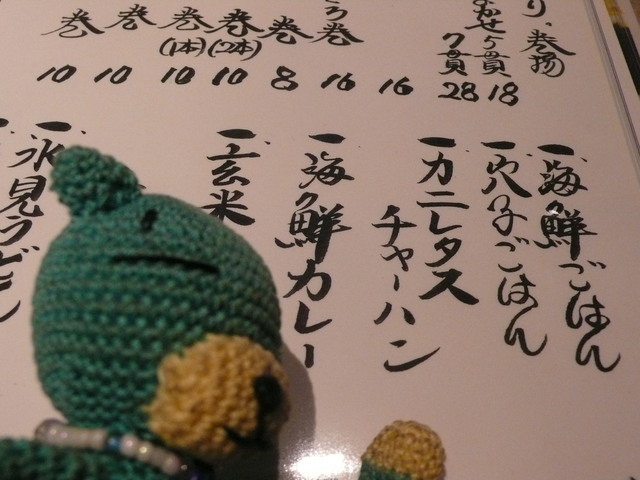 り、巻揚
18
7貫
28
16
う巻
16
巻
8
巻
(2本)
10
巻
(1本)
10
巻
10
巻
10
一、海鮮ごはん
一、穴子ごはん
一、カニレタス
チャーハン
一、海鮮カレー
一、玄米
一、氷見うどん